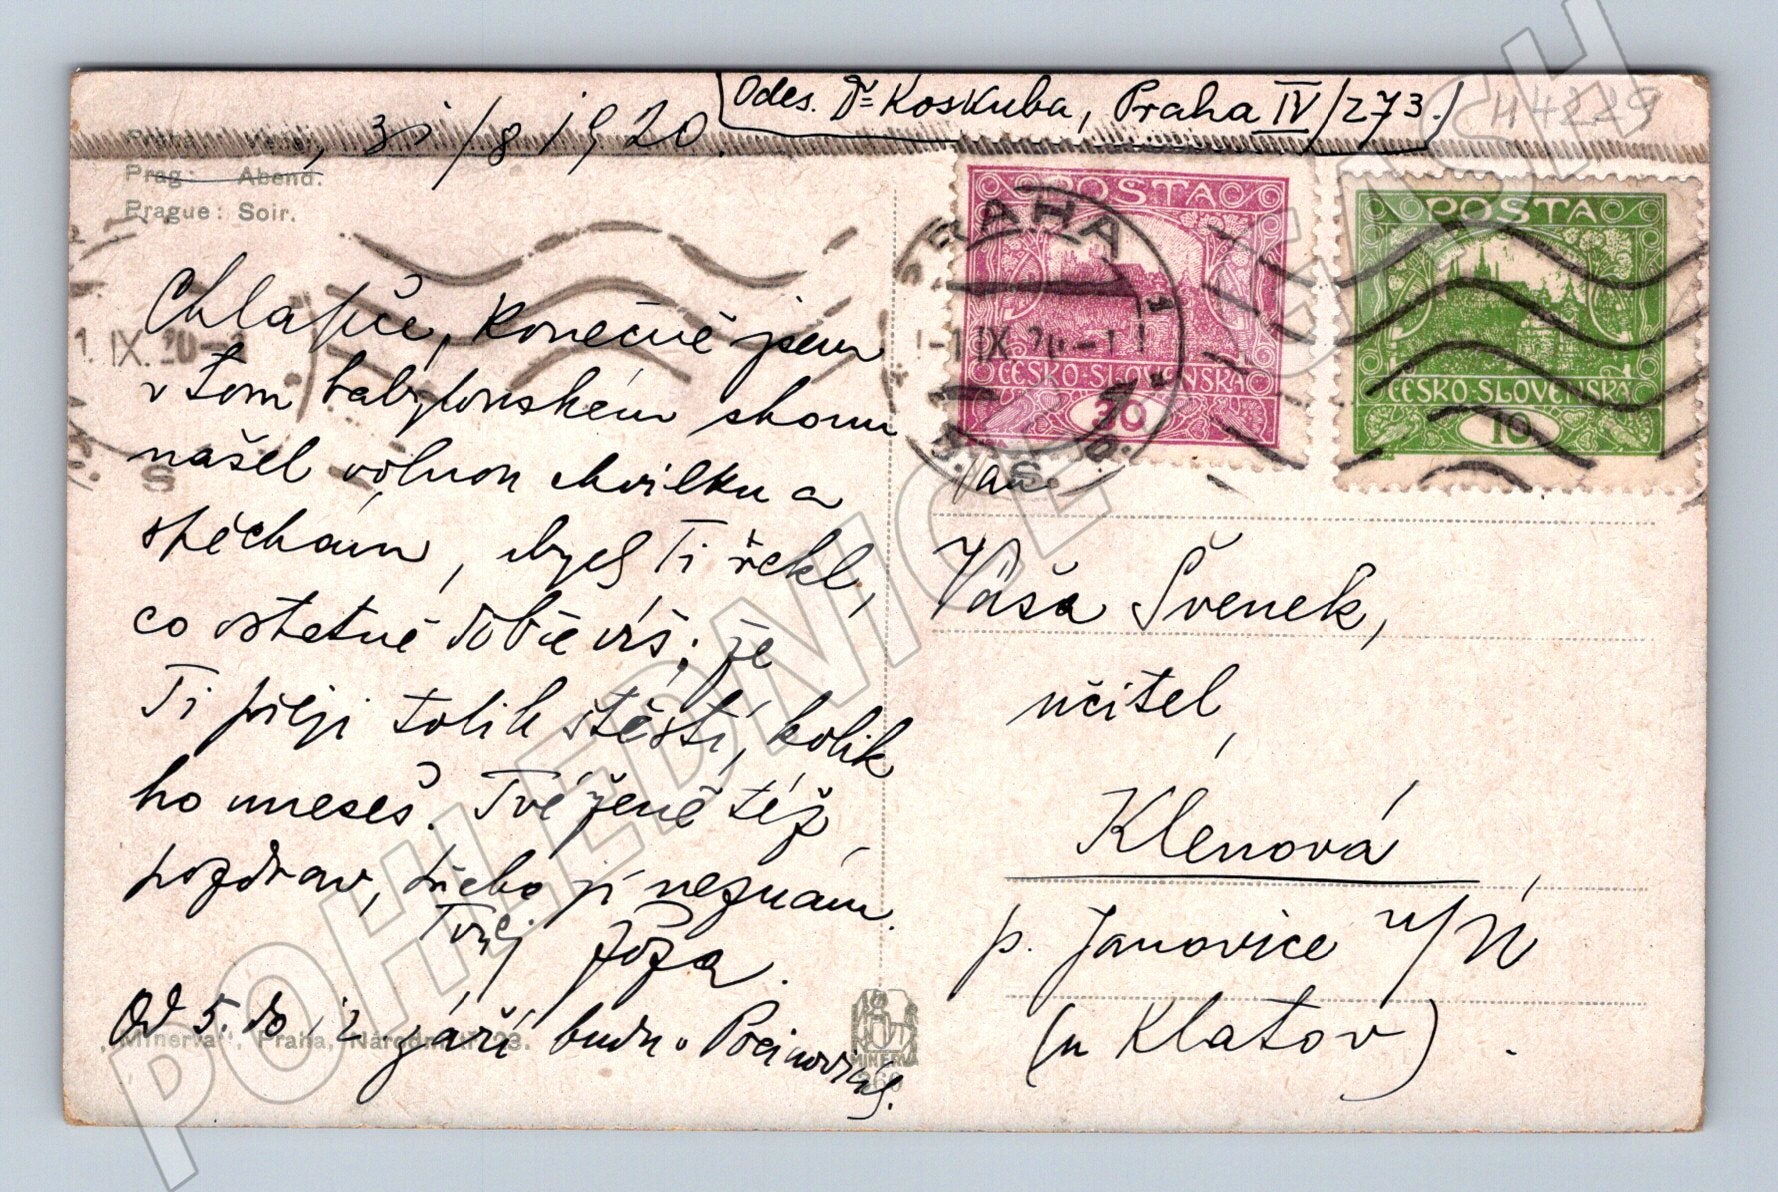 Odes. Dr Koskuba, Praha IV/273.
H4229
31/8 1920.
Prag: Abend.
Prague: Soir.
POSTA
ČESKO-SLOVENSKÁ
30
POSTA
ČESKO-SLOVENSKÁ
10
PRAHA
1.IX.20
Chlapče, konečně jsem
v tom babylonském shonu
našel volnou chvilku a
spěchám, abych Ti řekl,
co ostatně dobře víš: že
Ti přeji tolik štěstí, kolik
ho uneseš. Tvé ženě též
pozdrav, třeba jí neznám.
Tvůj Jóža.
Od 5. do 12. září budu v Pocinovicích.
"Minerva", Praha, Národní tř. 23.
MINERVA
260
Pan
Váša Švenek,
učitel,
Klenová
p. Janovice n/Ú
(u Klatov).
POHLEDNICE